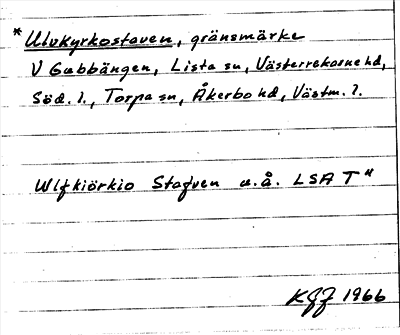 * Ulvkyrkostaven, gränsmärke
V Gubbängen, Lista sn, Västerrekarne hd,
Söd. l., Torpa sn, Åkerbo hd, Västm. l.
Wlfkiörkio Stafven u.å. LSA T"
KGJ 1966